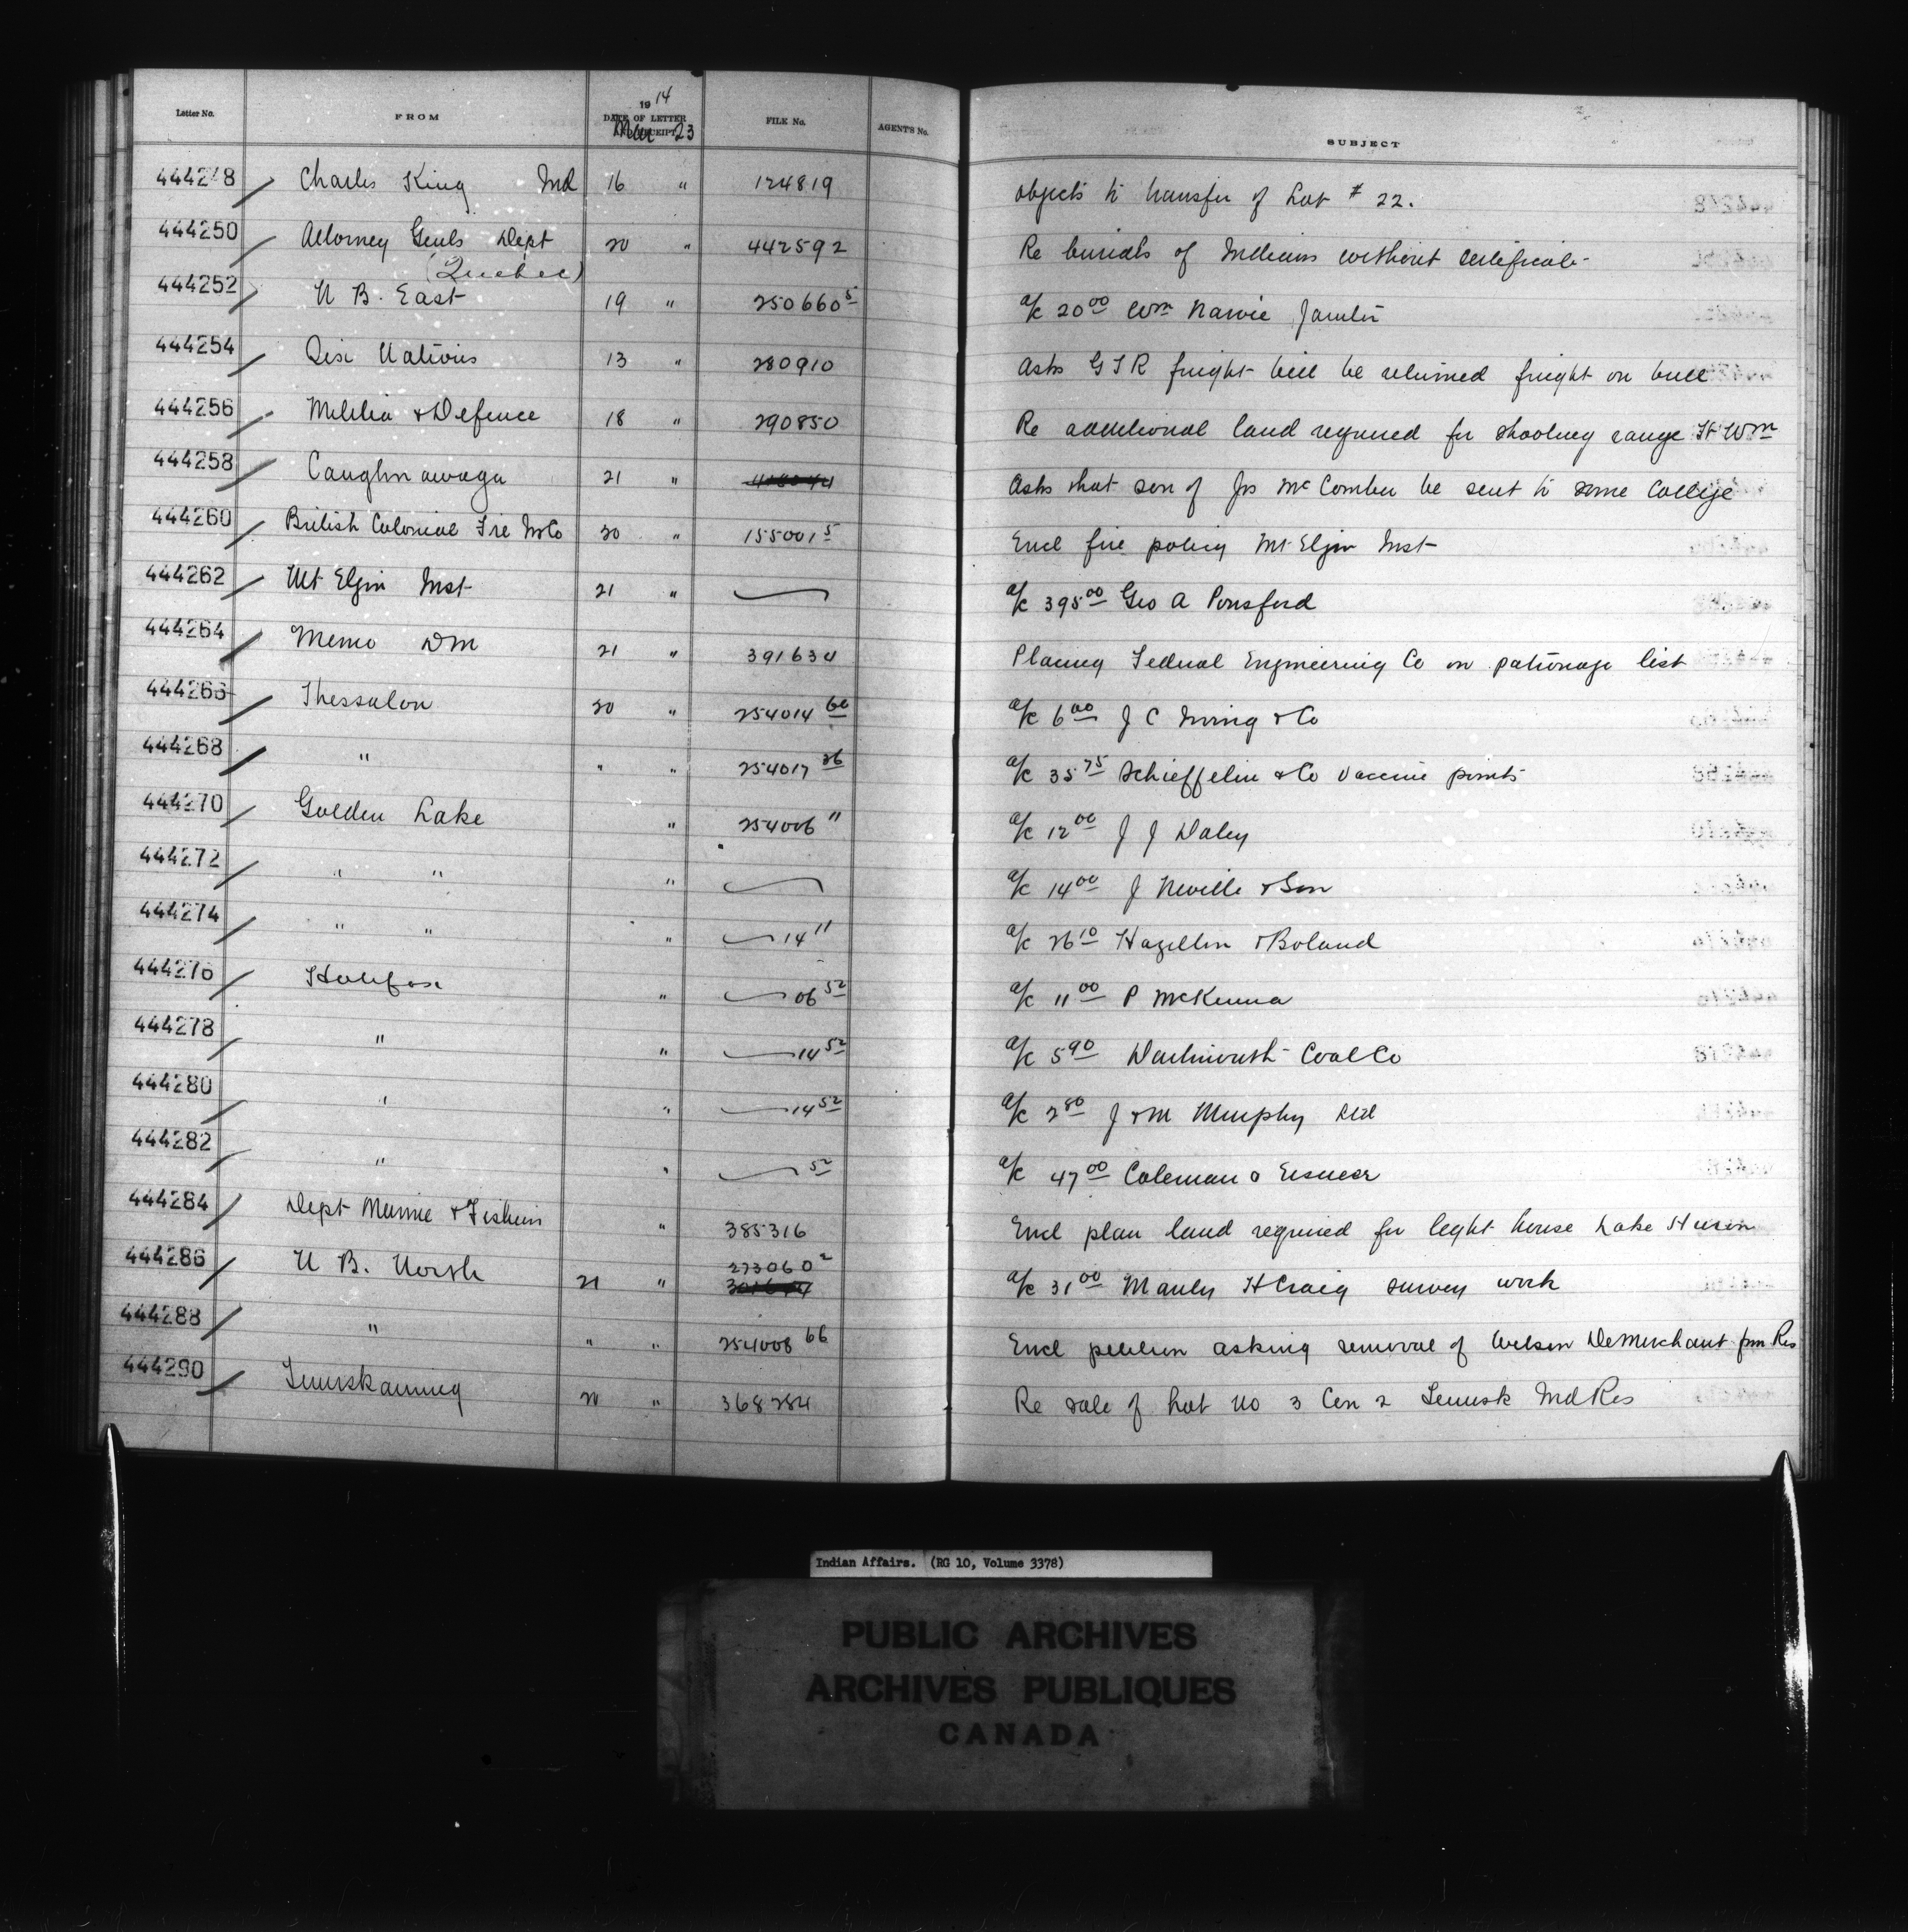 Letter No. FROM 1914 DATE OF LETTER RECEIPT Mar 23 FILE No. AGENTS No. SUBJECT
444248 Charles King Ind 16 " 124819 Objects to transfer of Lot # 22.
444250 Attorney Genls Dept 20 " 442592 Re burials of Indians without certificate
(Quebec)
444252 N B. East 19 " 250660 5 a/c 20 00 Wm
444254 Six Nations 13 " 280910 Asks G T R freight bill be returned freight on bull
444256 Militia & Defence 18 " 290850 Re additional land required for shooting range Ft Wm
444258 Caughnawaga 21 " Asks that son of Jos McComber be sent to some College
444260 British Colonial Fire Ins Co 20 " 155001 5 Encl fire policy Mt Elgin Inst
444262 Mt Elgin Inst 21 " a/c 395 00 Geo A Ponsford
444264 Memo DM 21 " 391634 Placing Federal Engineering Co on patronage list
444266 Thessalon 20 " 254014 60 a/c 6 00 J C Irving & Co
444268 " " " 254017 26 a/c 35 75 Schieffelin & Co Vaccine points
444270 Golden Lake " 254006 11 a/c 12 00 J J Daley
444272 " " " a/c 14 00 J Neville & Son
444274 " " " 14 11 a/c 26 10 & Boland
444276 Halifax " 06 52 a/c 11 00 P McKenna
444278 " " 14 52 a/c 5 90 Dartmouth Coal Co
444280 " " 14 52 a/c 2 80 J & M Murphy Ltd
444282 " " 52 a/c 47 00 Coleman
444284 Dept Marine & Fisheries " 385316 Encl plan land required for light house Lake Huron
444286 N B. North 21 " 273060 2 a/c 31 00 H Craig survey work
444288 " " " 254008 66 Encl petition asking removal of Wilson DeMerchant frm Res
444290 Temiskaming 20 " 368284 Re sale of Lot No 3 Con 2 Temisk Ind Res
Indian Affairs. (RG 10, Volume 3378)
PUBLIC ARCHIVES
ARCHIVES PUBLIQUES
CANADA